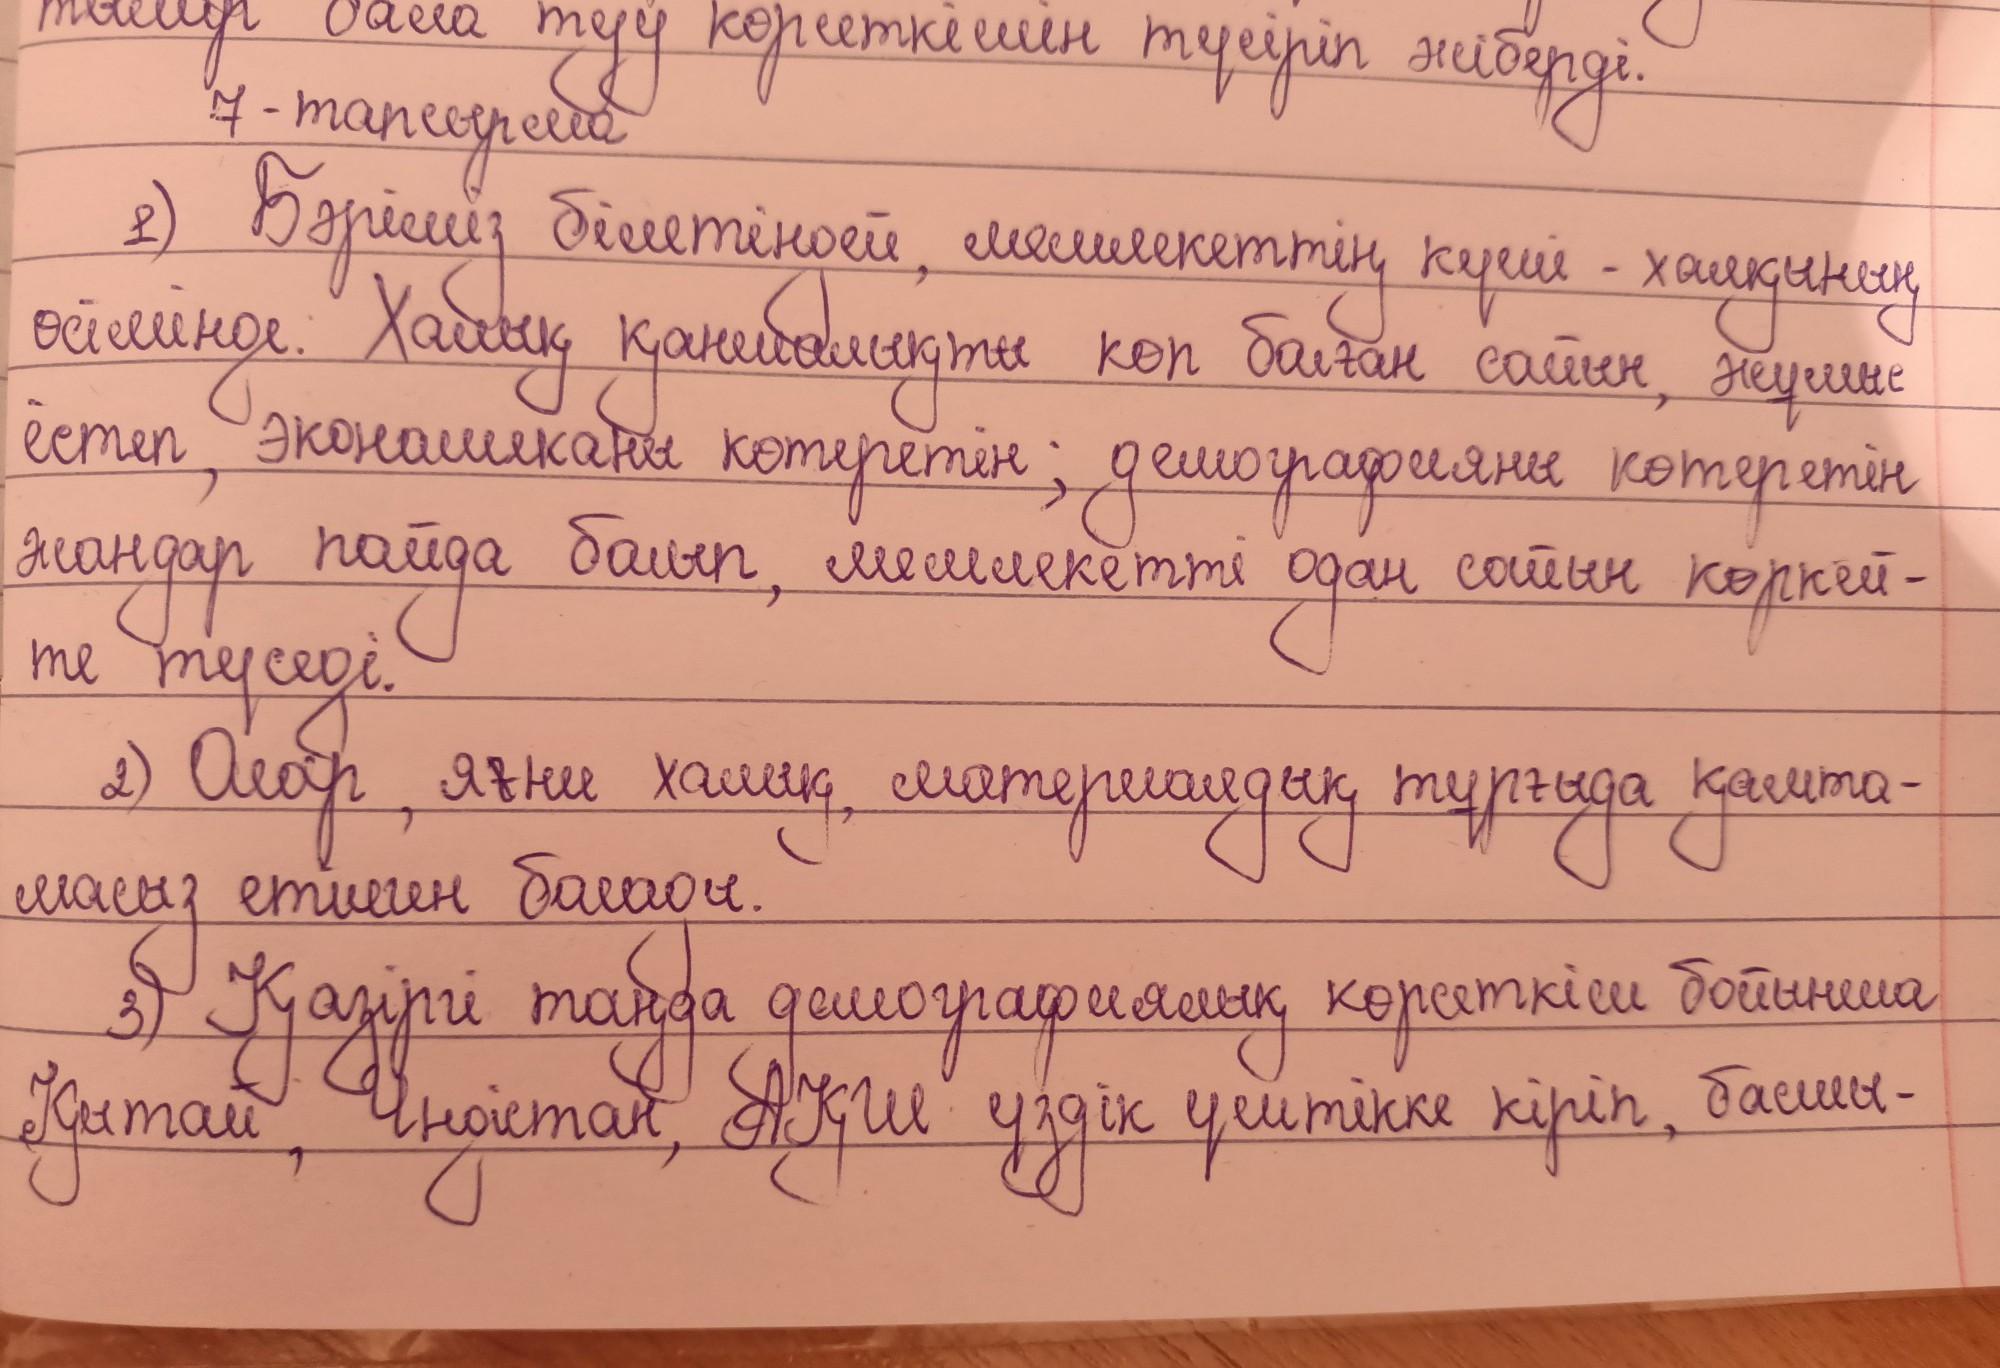 бала туу көрсеткішін түсіріп жіберді.
7-тапсырма
1) Бәріміз білетіндей, мемлекеттің күші - халқының
өсімінде. Халық қаншалықты көп болған сайын, жұмыс
істеп, экономиканы көтеретін; демографияны көтеретін
жандар пайда болып, мемлекетті одан сайын көркей-
те түседі.
2) Олар, яғни халық, материалдық тұрғыда қамта-
масыз етілген болады.
3) Қазіргі таңда демографиялық көрсеткіш бойынша
Қытай, Үндістан, АҚШ үздік үштікке кіріп, басшы-